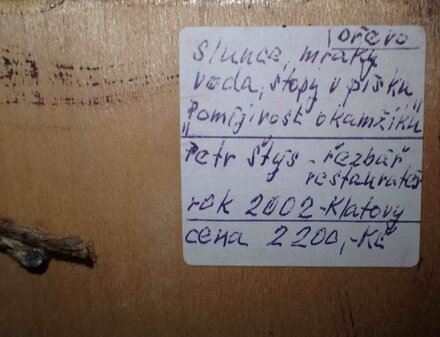 dřevo
slunce, mraky
voda, stopy v písku
"Pomíjivost okamžiku"
Petr Štys - řezbář
restaurátor
rok 2002 - Klatovy
cena 2 200,-Kč